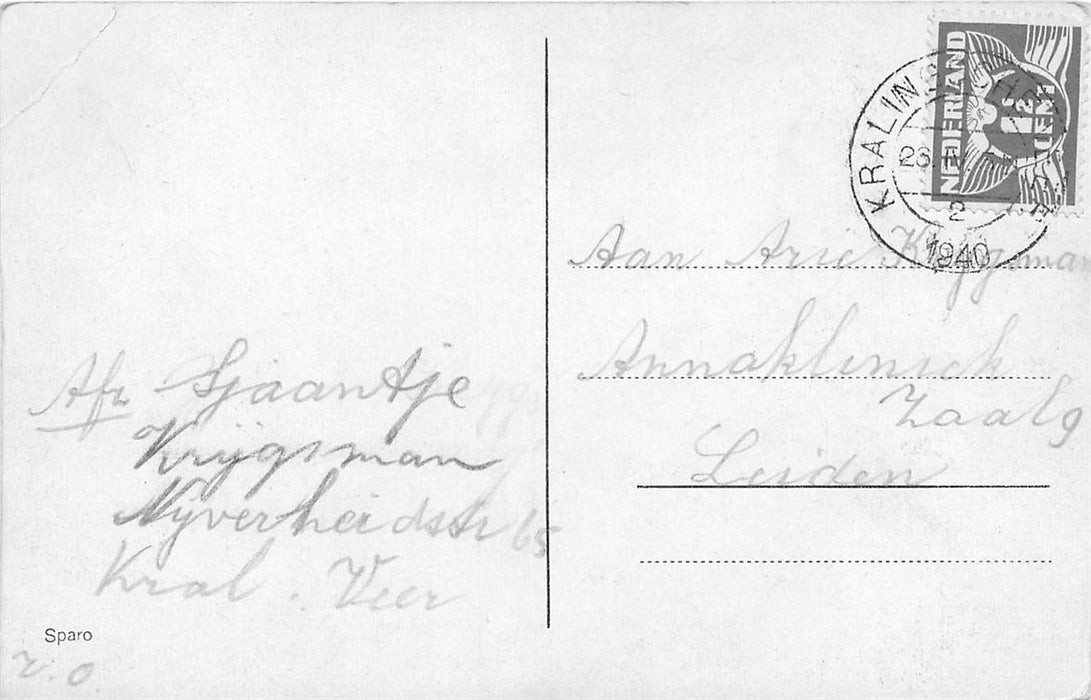 NEDERLAND
1½ CENT
KRALING
26.IV.
2
1940
Aan Arie Krygsman
Annaklinick
Zaal 9
Leiden
Afz Sjaantje
Krijgsman
Nyverheidstr 65
Kral. Veer
Sparo
z.o.